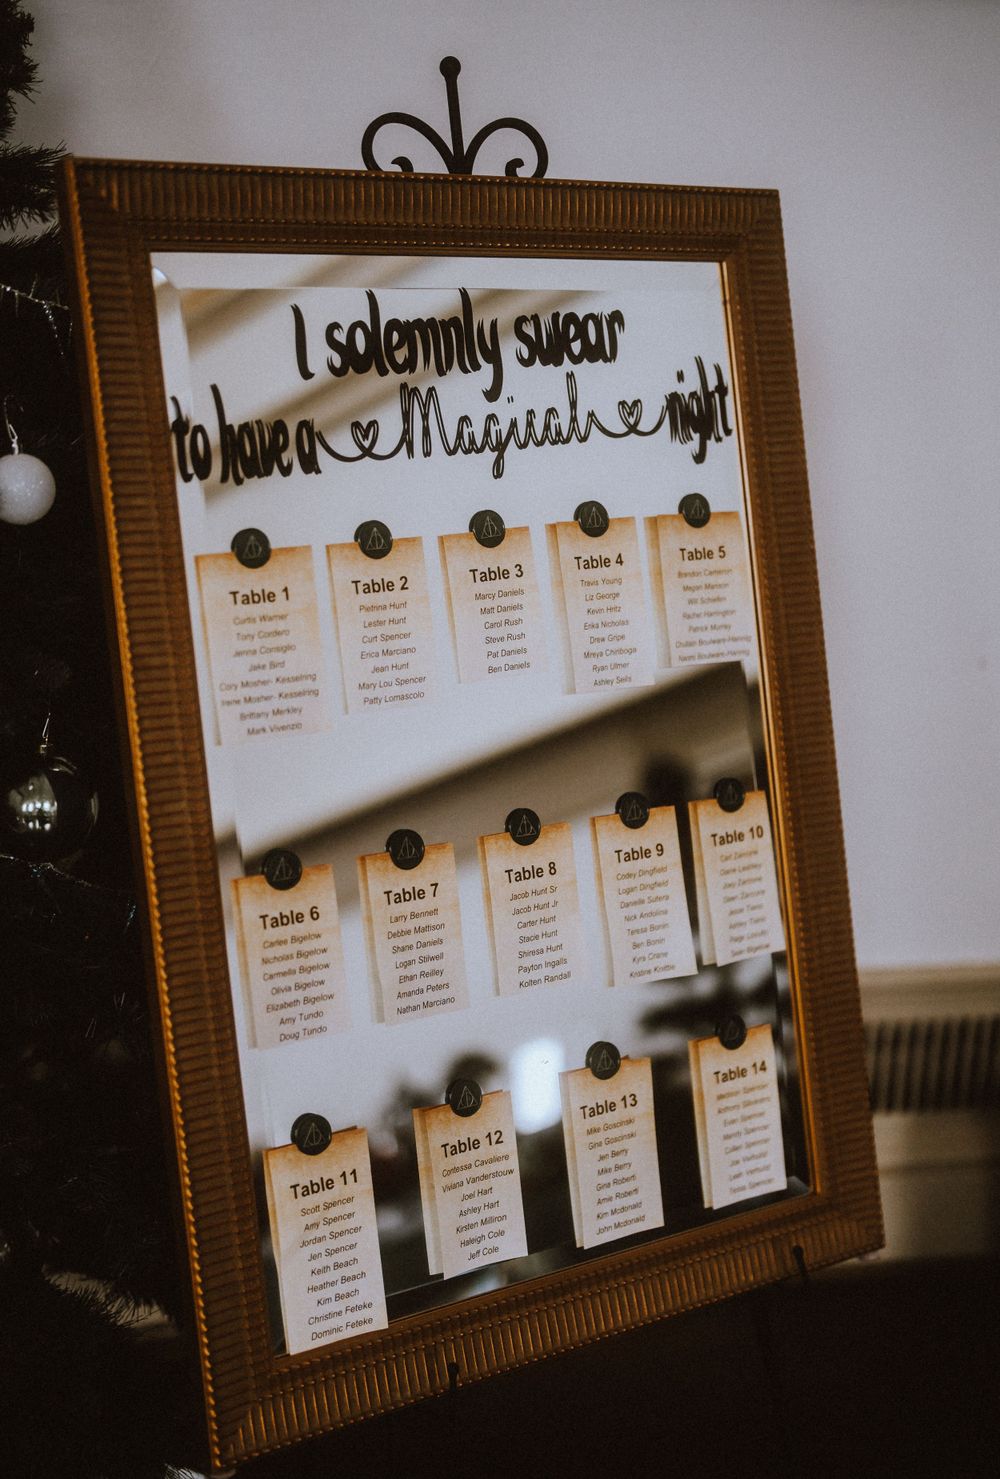 I solemnly swear
to have a Magical night
Table 1
Curtis Warner
Tony Cordero
Jenna Consiglio
Jake Bird
Cory Mosher- Kesselring
Irene Mosher- Kesselring
Brittany Merkley
Mark Vivenzio
Table 2
Pietrina Hunt
Lester Hunt
Curt Spencer
Erica Marciano
Jean Hunt
Mary Lou Spencer
Patty Lomascolo
Table 3
Marcy Daniels
Matt Daniels
Carol Rush
Steve Rush
Pat Daniels
Ben Daniels
Table 4
Travis Young
Liz George
Kevin Hritz
Erika Nicholas
Drew Gripe
Mireya Chiriboga
Ryan Ulmer
Ashley Seils
Table 5
Brandon Cameron
Megan Manson
Will Schiefen
Rachel Harrington
Patrick Murray
Boulware-Hannig
Naomi Boulware-Hannig
Table 6
Carlee Bigelow
Nicholas Bigelow
Carmella Bigelow
Olivia Bigelow
Elizabeth Bigelow
Amy Tundo
Doug Tundo
Table 7
Larry Bennett
Debbie Mattison
Shane Daniels
Logan Stilwell
Ethan Reilley
Amanda Peters
Nathan Marciano
Table 8
Jacob Hunt Sr
Jacob Hunt Jr
Carter Hunt
Stacie Hunt
Shiresa Hunt
Payton Ingalls
Kolten Randall
Table 9
Codey Dingfield
Logan Dingfield
Danielle Sutera
Nick Andolina
Teresa Bonin
Ben Bonin
Kyra Crane
Kristine Knittle
Table 10
Carl Zarcone
Joey Zarcone
Zarcone
Jesse Tianio
Ashley Tianio
Paige
Sean Bigelow
Table 11
Scott Spencer
Amy Spencer
Jordan Spencer
Jen Spencer
Keith Beach
Heather Beach
Kim Beach
Christine Feteke
Dominic Feteke
Table 12
Contessa Cavaliere
Viviana Vanderstouw
Joel Hart
Ashley Hart
Kirsten Milliron
Haleigh Cole
Jeff Cole
Table 13
Mike Goscinski
Gina Goscinski
Jen Berry
Mike Berry
Gina Roberti
Arnie Roberti
Kim Mcdonald
John Mcdonald
Table 14
Madison Spencer
Anthony
Evan Spencer
Mandy Spencer
Cullen Spencer
Joe Vierhulst
Leah Vierhulst
Spencer